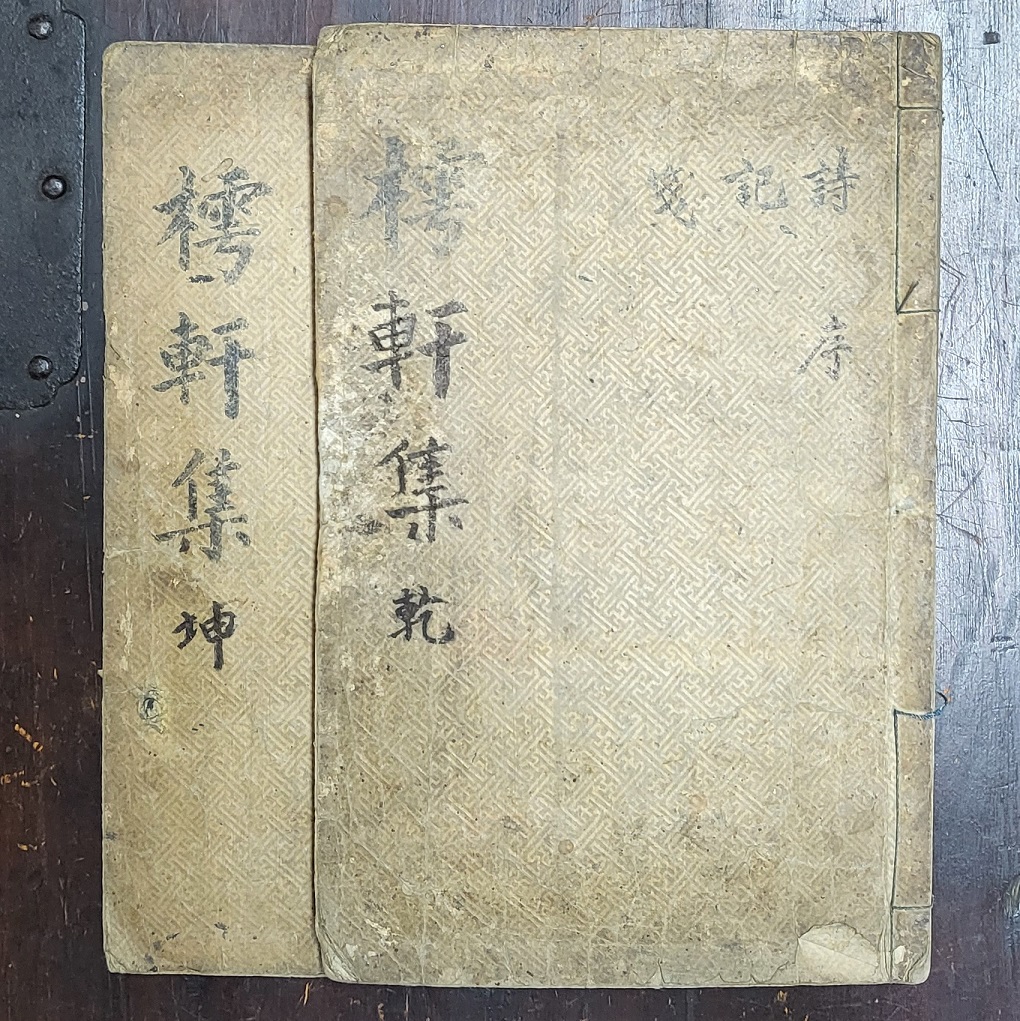 詩 序
記
箋
樗軒集 乾
樗軒集 坤